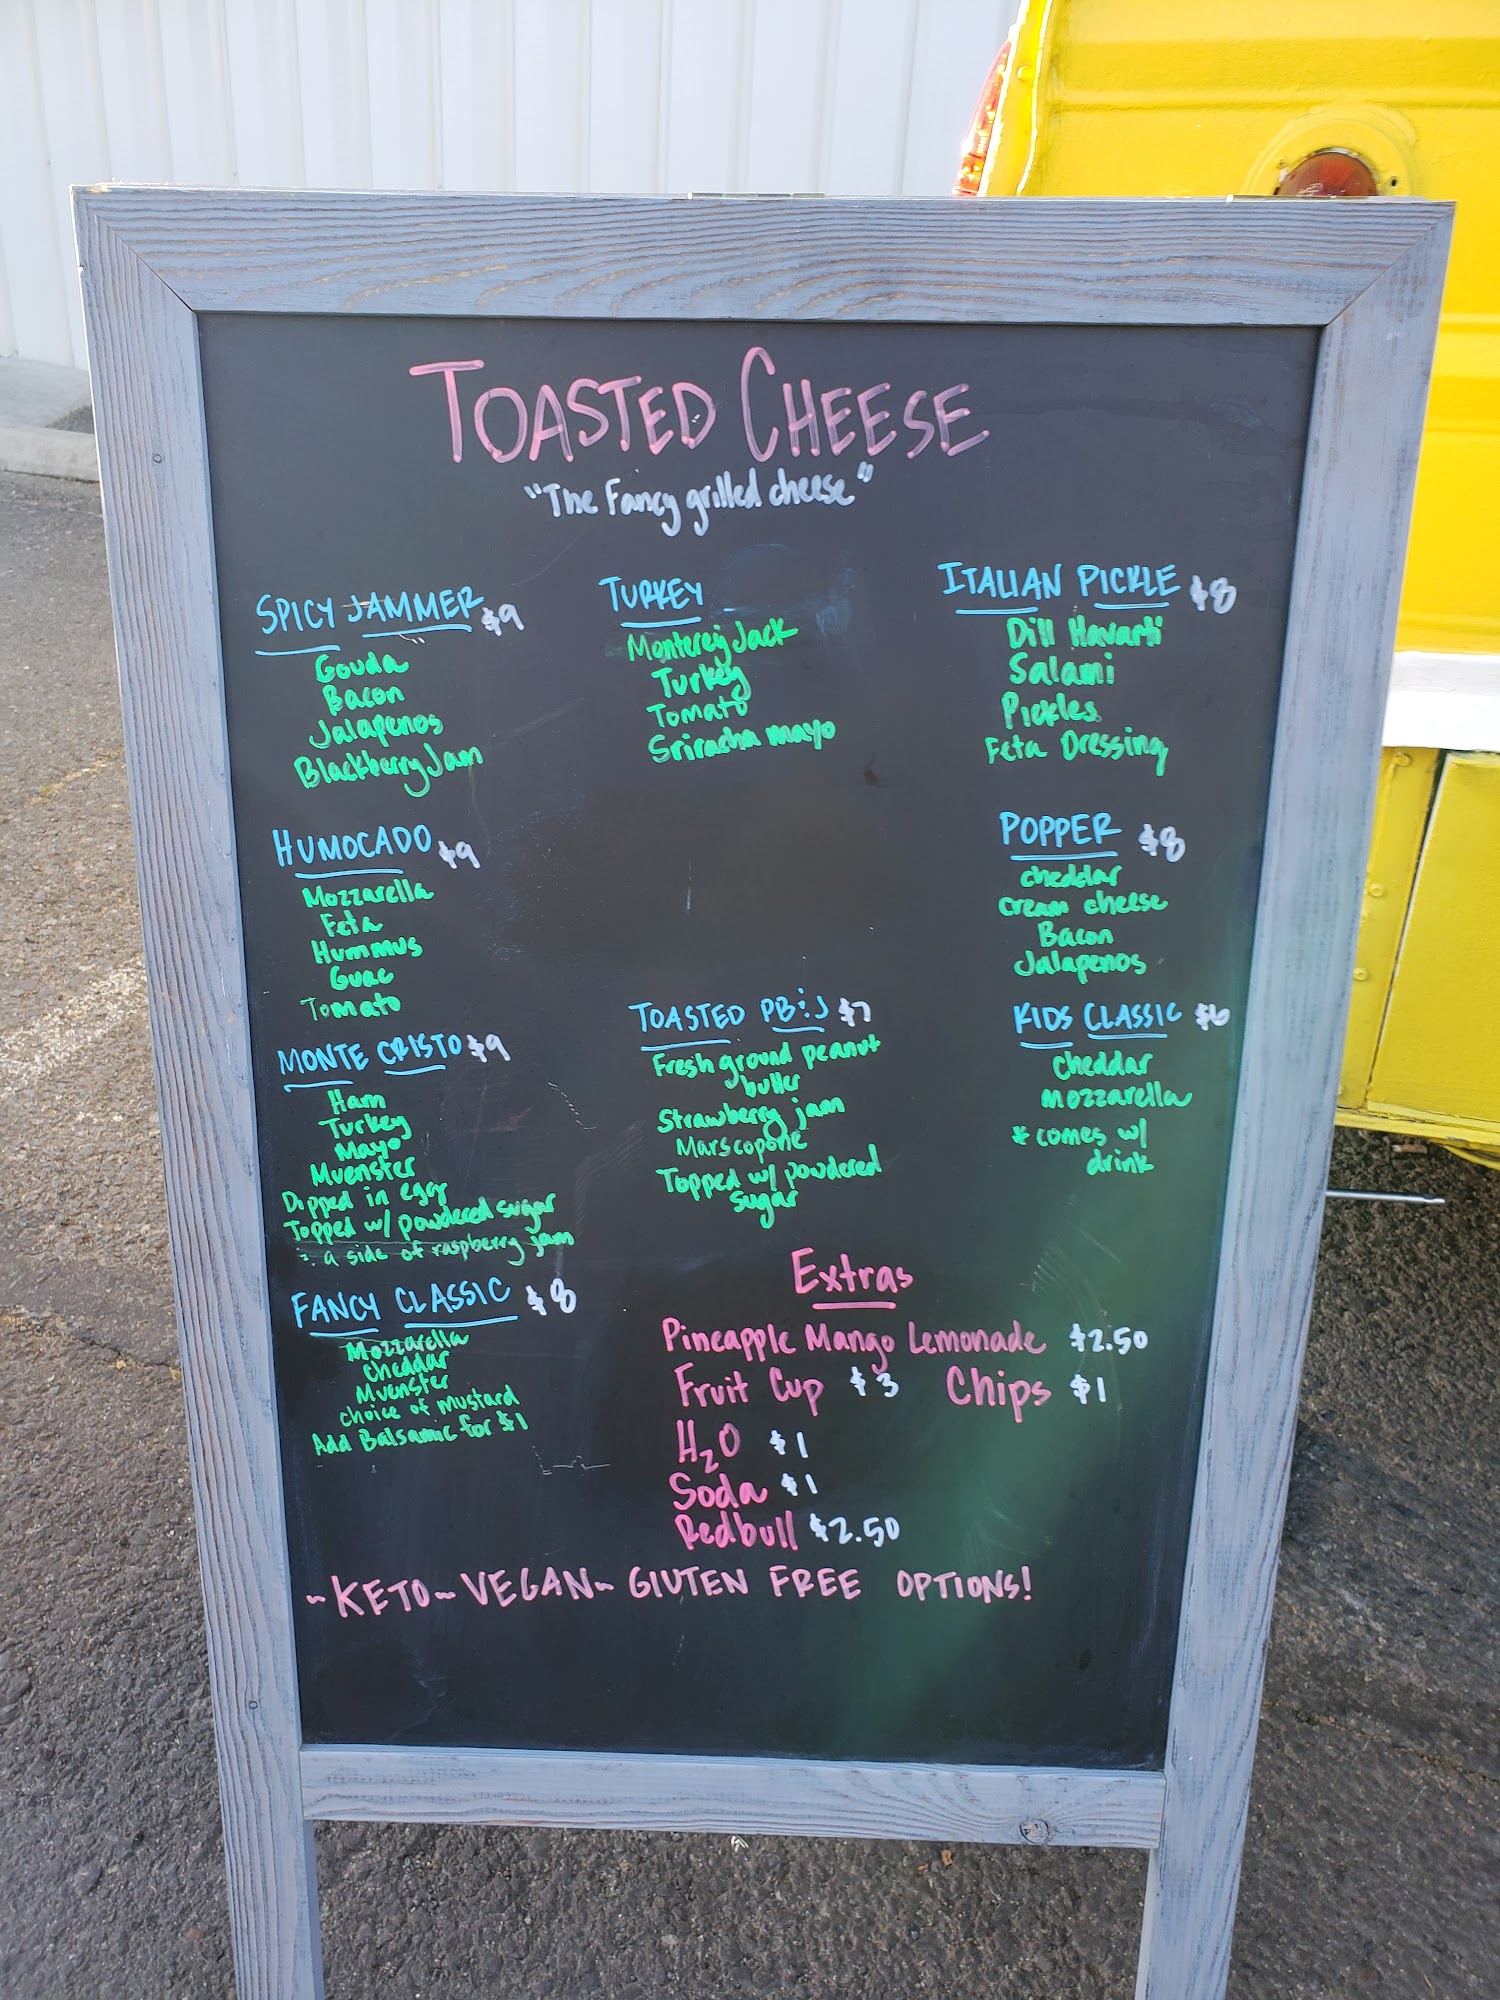 TOASTED CHEESE
"The Fancy grilled cheese"
SPICY JAMMER $9
Gouda
Bacon
Jalapenos
Blackberry Jam
HUMOCADO $9
Mozzarella
Feta
Hummus
Guac
Tomato
MONTE CRISTO $9
Ham
Turkey
Mayo
Muenster
Dipped in egg
Topped w/ powdered sugar
& a side of raspberry jam
FANCY CLASSIC $8
Mozzarella
cheddar
Muenster
choice of mustard
Add Balsamic for $1
TURKEY
Monterey Jack
Turkey
Tomato
Sriracha mayo
TOASTED PB&J $7
Fresh ground peanut
butter
Strawberry jam
Marscopone
Topped w/ powdered
sugar
ITALIAN PICKLE $8
Dill Havarti
Salami
Pickles
Feta Dressing
POPPER $8
cheddar
cream cheese
Bacon
Jalapenos
KIDS CLASSIC $6
cheddar
mozzarella
* comes w/
drink
Extras
Pineapple Mango Lemonade $2.50
Fruit Cup $3 Chips $1
H₂O $1
Soda $1
Redbull $2.50
~KETO~VEGAN~GLUTEN FREE OPTIONS!